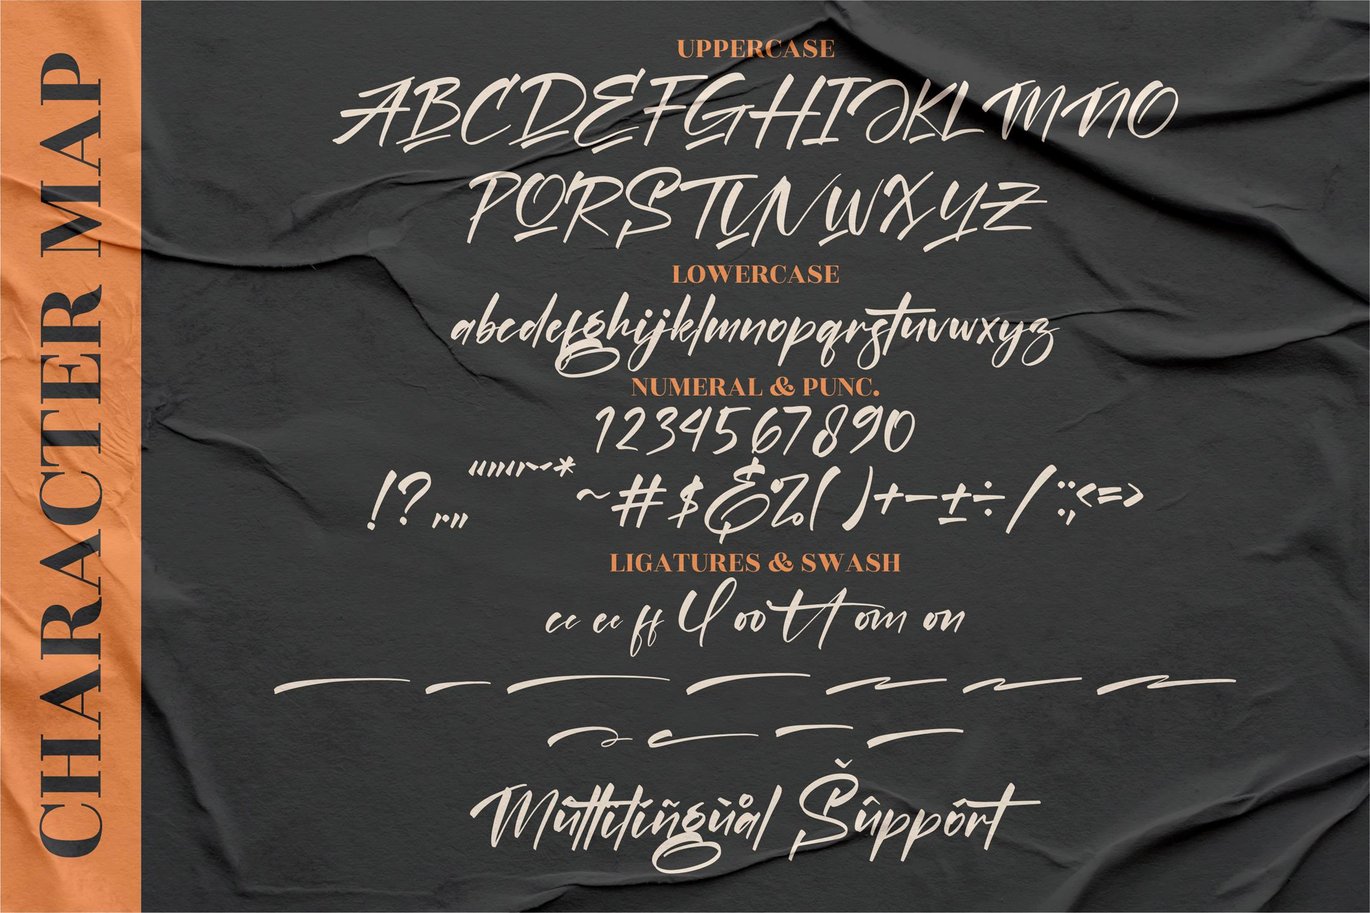 CHARACTER MAP
UPPERCASE
ABCDEFGHIJKLMNO
PQRSTUVWXYZ
LOWERCASE
abcdefghijklmnopqrstuvwxyz
NUMERAL & PUNC.
1234567890
!?
~#$&%()+−±÷/:;<=>
LIGATURES & SWASH
ff ll oo tt om on
Mûltitíñgùål Šûppôrt